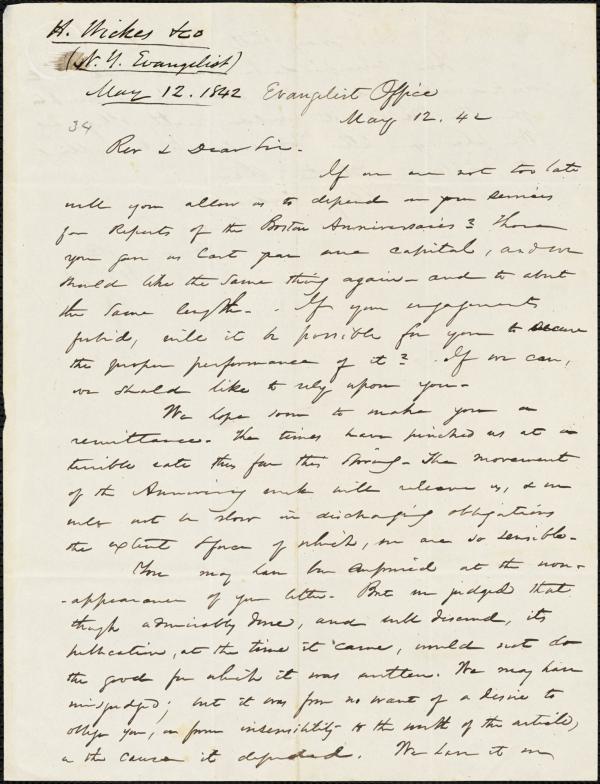 H. Wickes & Co
(N. Y. Evangelist)
May 12. 1842 Evangelist Office
May 12. 42
34
Rev & Dear Sir.
If we are not too late
will you allow us to depend on your services
for Reports of the Boston Anniversaries? Those
you gave us last year were capital, and we
should like the same thing again - and to about
the same length. If your engagements
forbid, will it be possible for you to secure
the proper performance of it? If we can,
we should like to rely upon you.
We hope soon to make you a
remittance. The times have pinched us at a
terrible rate thus far this Spring. The movement
of the Anniversary week will relieve us, & we
will not be slow in discharging obligations
the extent & force of which, we are so sensible.
You may have been surprised at the non-
-appearance of your letter. But we judged that
though admirably done, and well discussed, its
publication, at the time it came, would not do
the good for which it was written. We may have
misjudged; but it was from no want of a desire to
oblige you, or from insensibility to the worth of the article,
or the cause it defended. We have it on